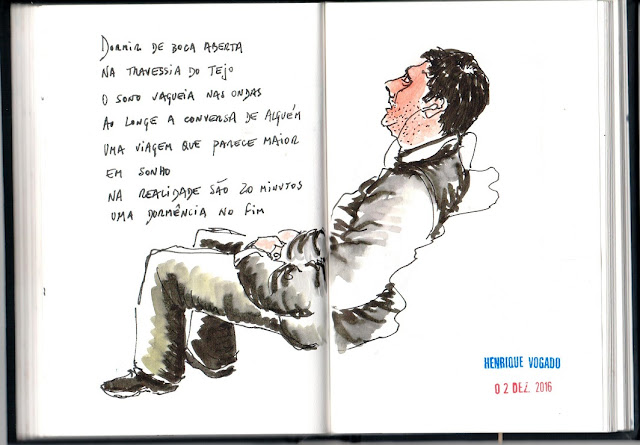 DORMIR DE BOCA ABERTA
NA TRAVESSIA DO TEJO
O SONO VAGUEIA NAS ONDAS
AO LONGE A CONVERSA DE ALGUÉM
UMA VIAGEM QUE PARECE MAIOR
EM SONHO
NA REALIDADE SÃO 20 MINUTOS
UMA DORMÊNCIA NO FIM
HENRIQUE VOGADO
02 DEZ. 2016